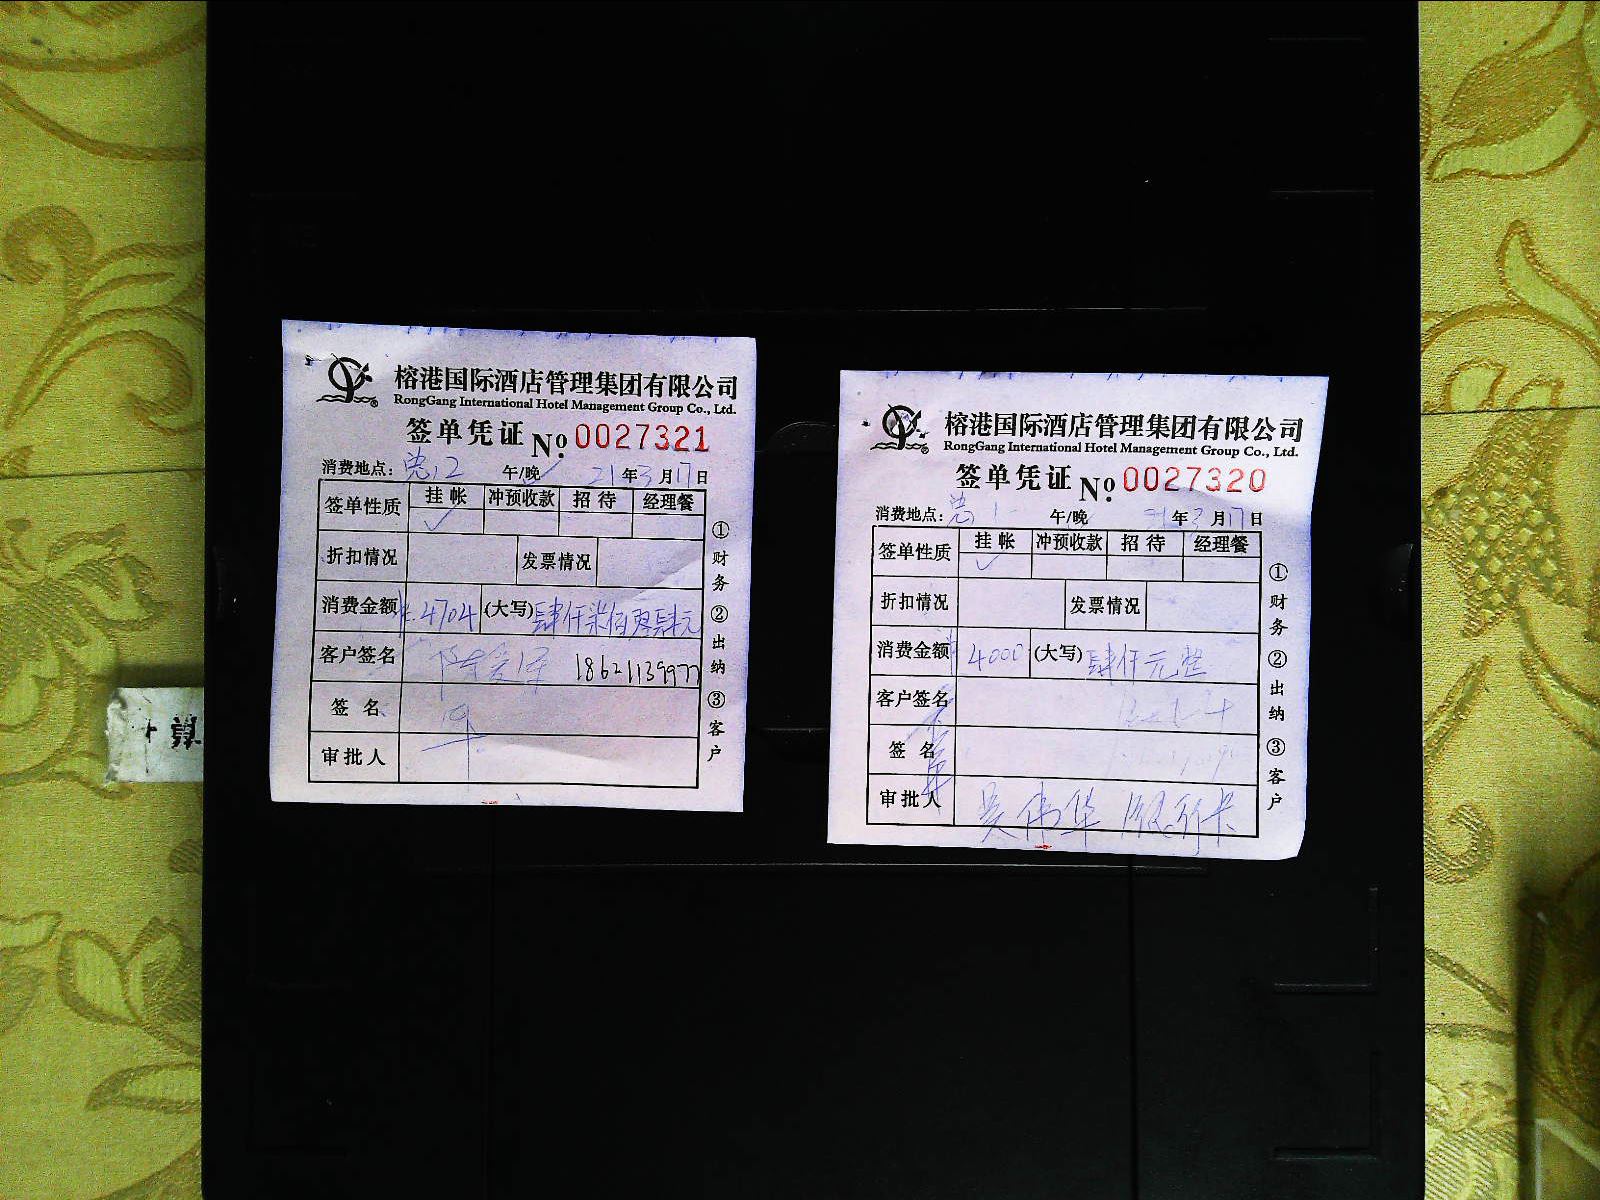 榕港国际酒店管理集团有限公司
RongGang International Hotel Management Group Co., Ltd.
签单凭证 No. 0027321
消费地点: 12 午/晚 21年3月17日
签单性质 挂帐 冲预收款 招待 经理餐
✓
折扣情况 发票情况
消费金额 ¥4704 (大写) 肆仟柒佰零肆元
客户签名 18621139977
签名
审批人
①财务 ②出纳 ③客户
榕港国际酒店管理集团有限公司
RongGang International Hotel Management Group Co., Ltd.
签单凭证 No. 0027320
消费地点: 午/晚 21年3月17日
签单性质 挂帐 冲预收款 招待 经理餐
✓
折扣情况 发票情况
消费金额 ¥4000 (大写) 肆仟元整
客户签名
签名
审批人 吴伟华
①财务 ②出纳 ③客户
算